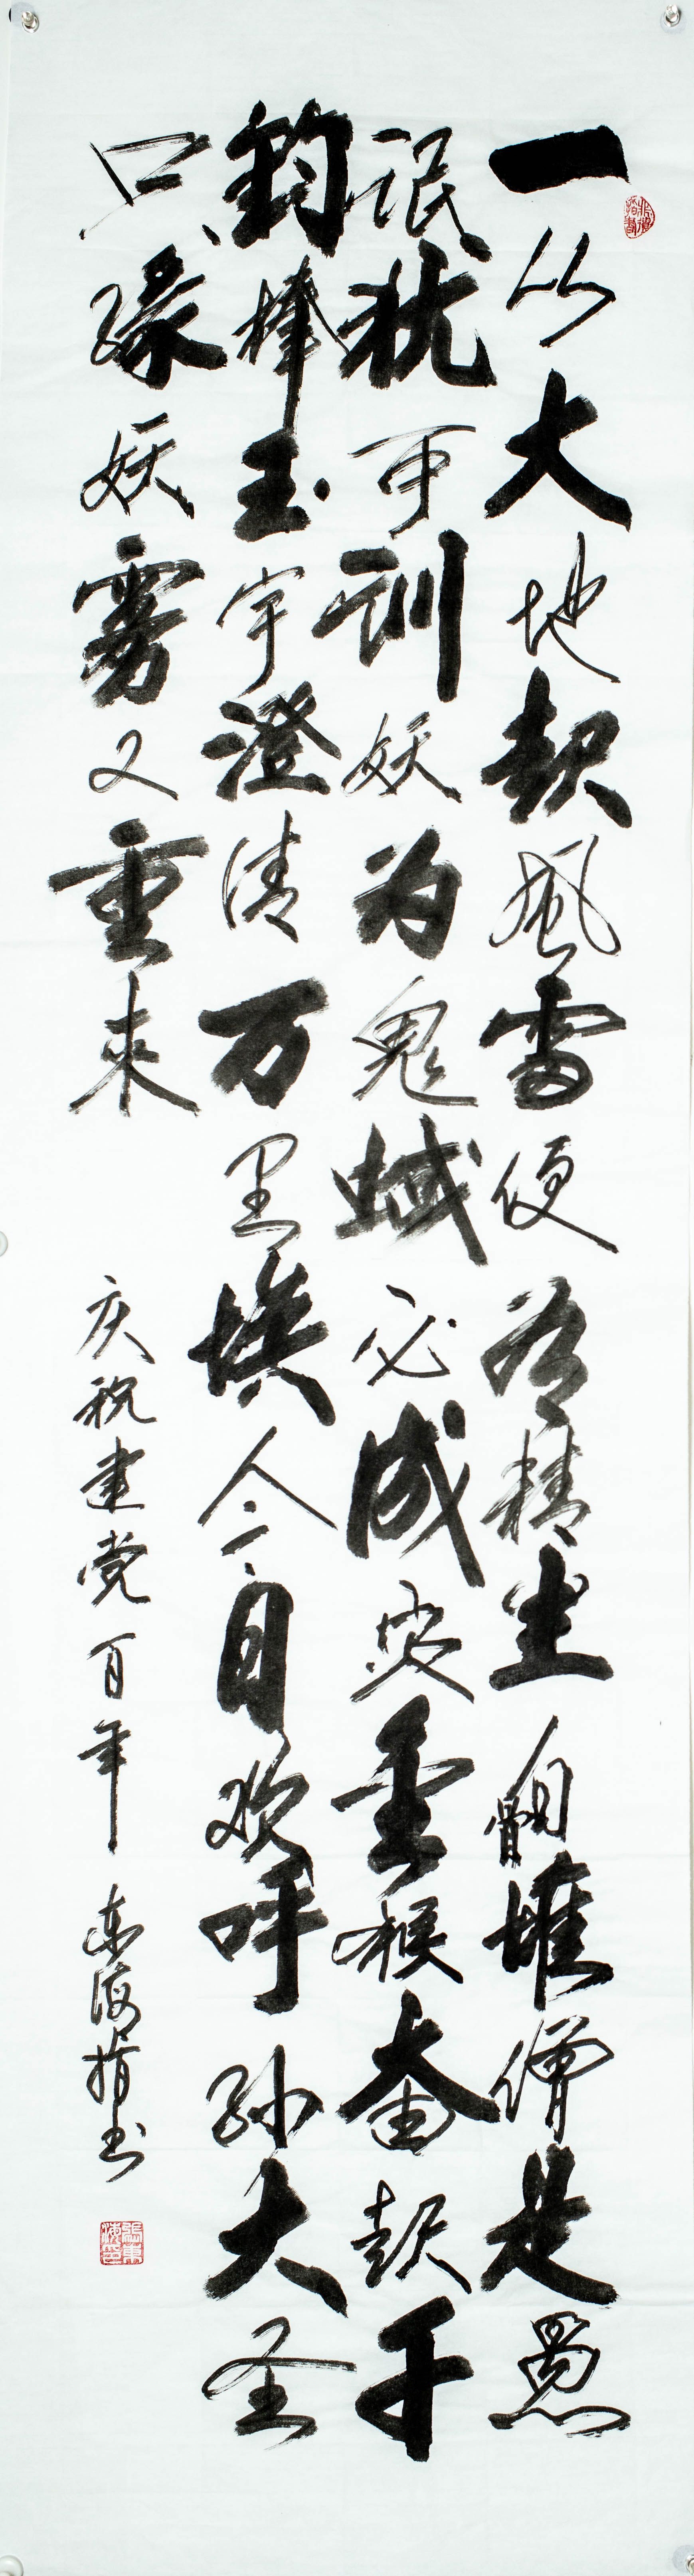 一从大地起風雷便有精生白骨堆僧是愚
氓犹可训妖为鬼蜮必成灾金猴奋起千
鈞棒玉宇澄清万里埃今日欢呼孙大圣
只缘妖雾又重来
庆祝建党百年 东海指书
張東海印